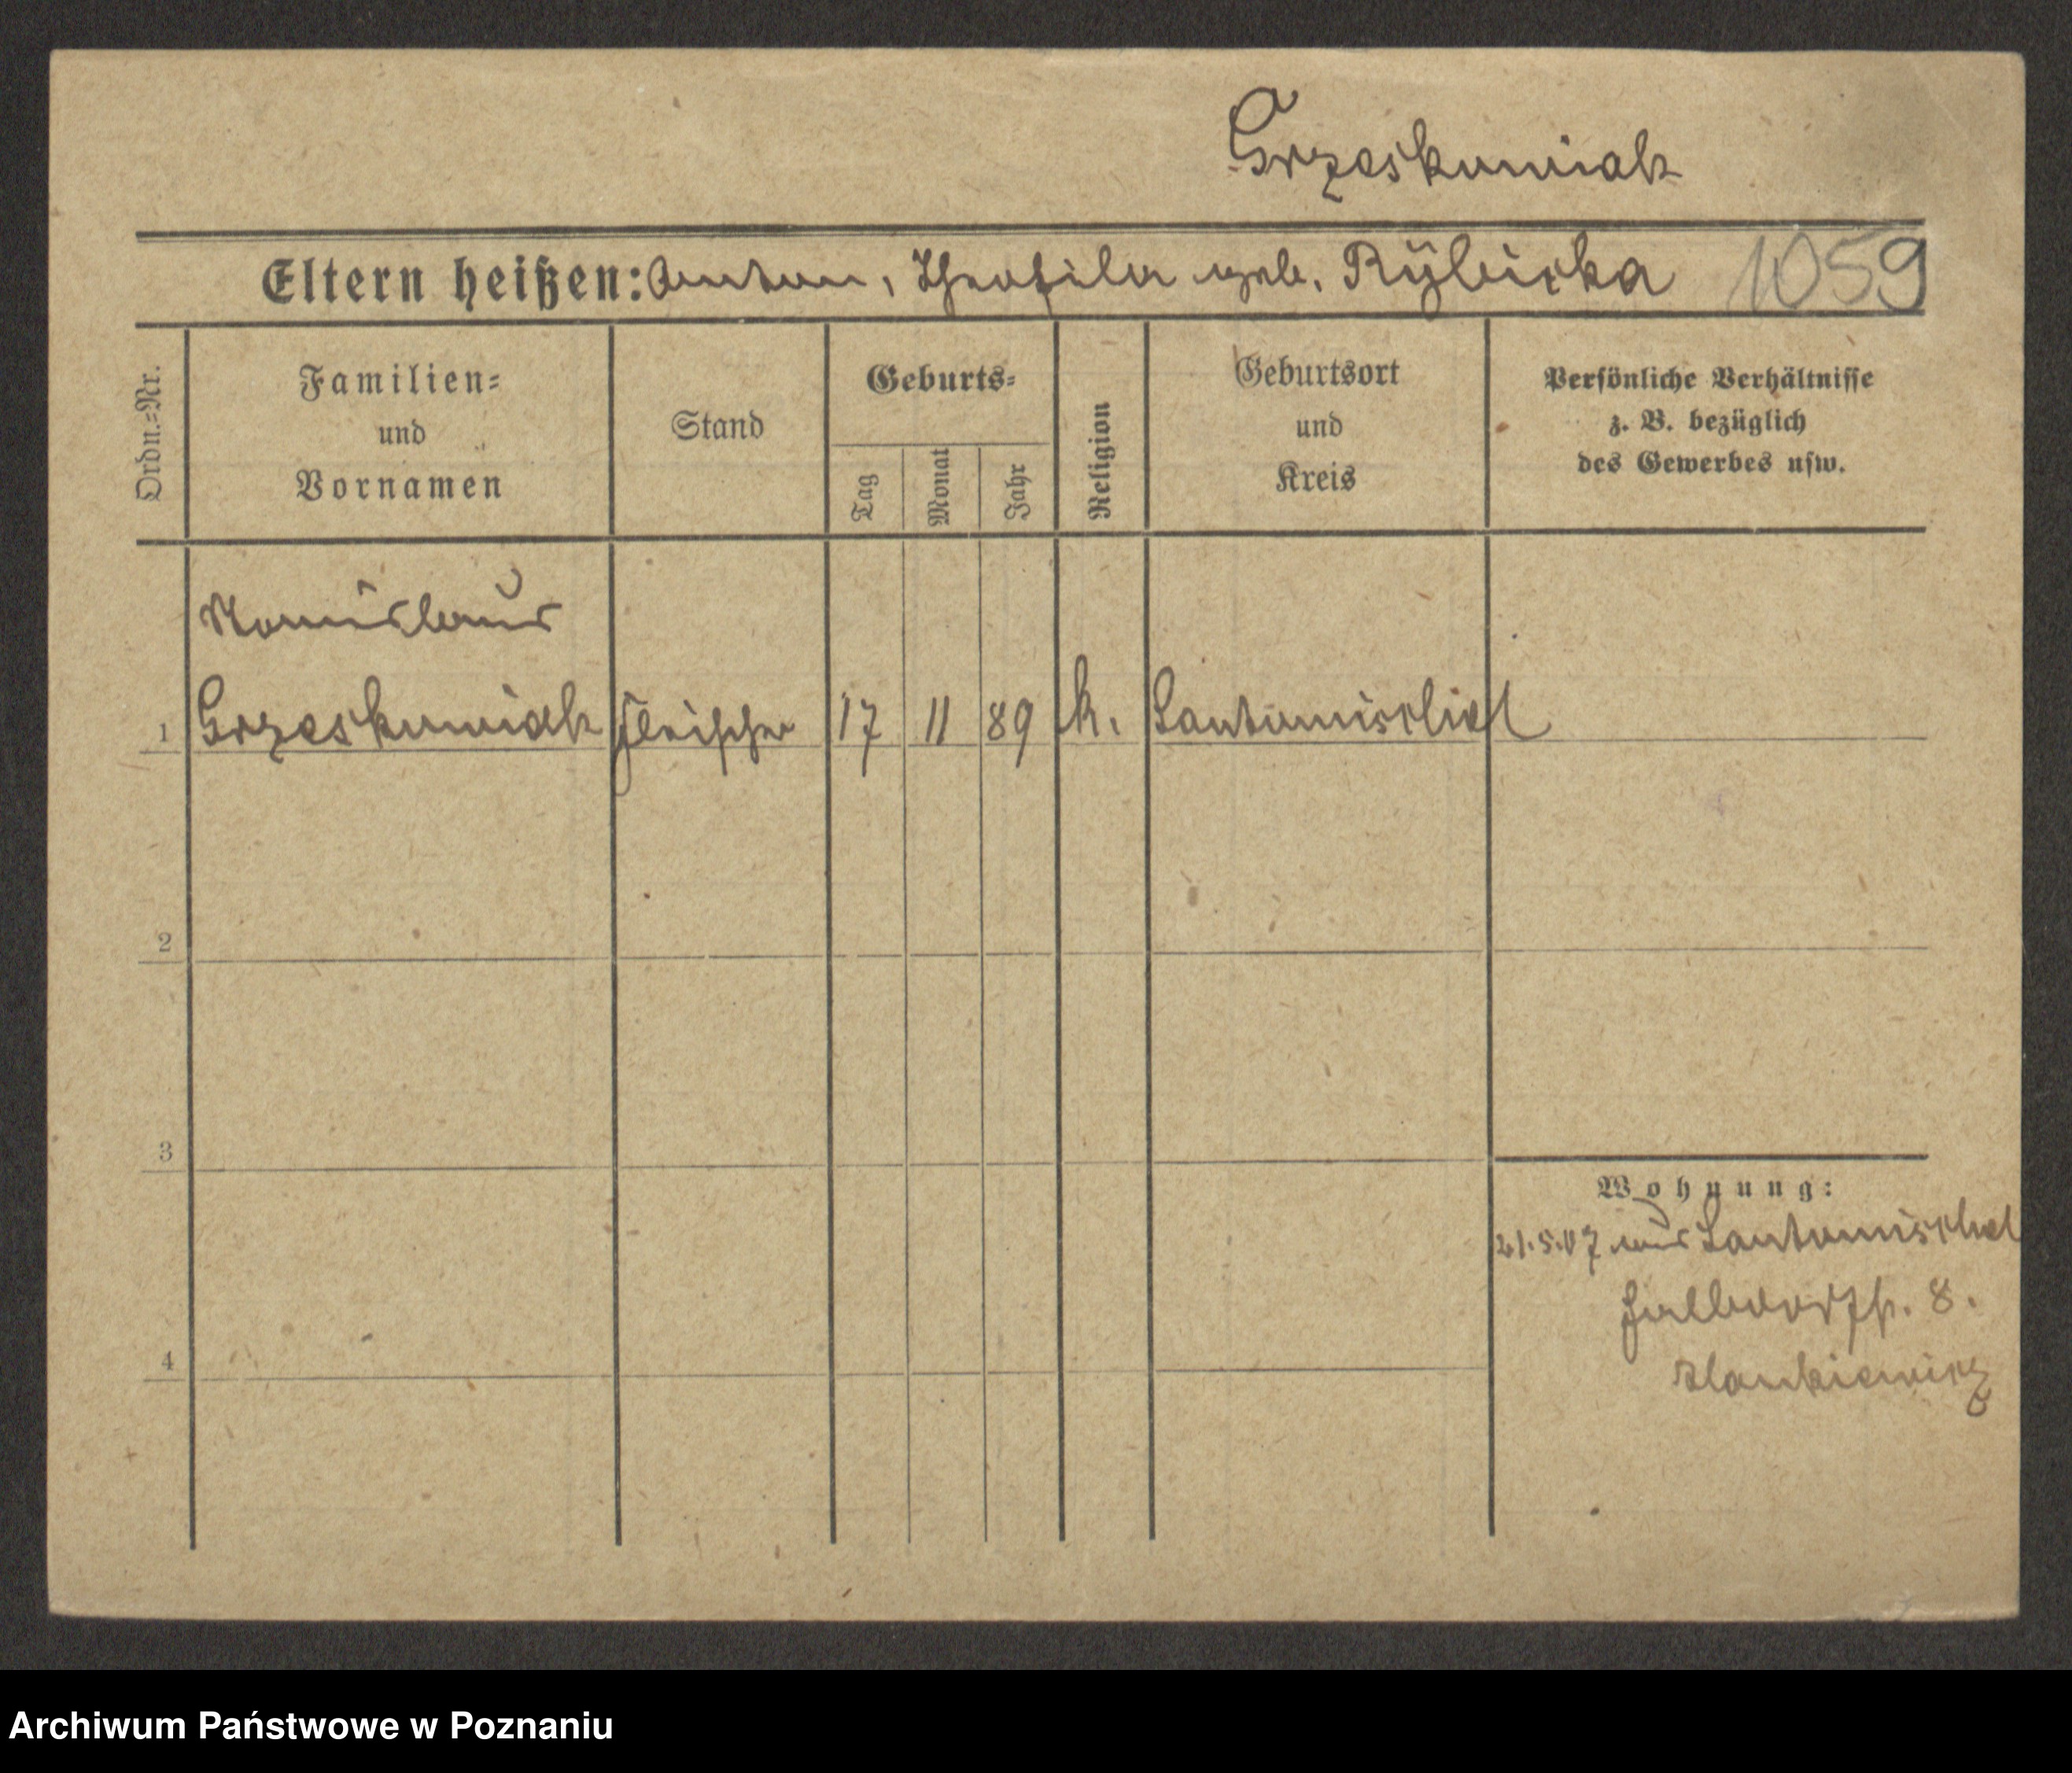 Grzeskowiak
Eltern heißen: Anton, Theofila geb. Rÿbicka 1059
Ordn.-Nr.
Familien-
und
Vornamen
Stand
Geburts-
Tag
Monat
Jahr
Religion
Geburtsort
und
Kreis
Persönliche Verhältnisse
z. B. bezüglich
des Gewerbes usw.
Stanislaus
1 Grzeskowiak Fleischer 17 11 89 k. Santomischel
2
3
Wohnung:
21.5.07 aus Santomischel
Halbdorfstr. 8.
4
Archiwum Państwowe w Poznaniu